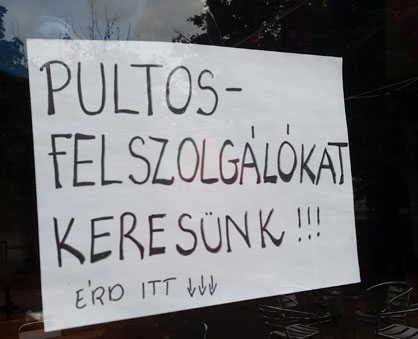 PULTOS-
FELSZOLGÁLÓKAT
KERESÜNK!!!
ÉRD ITT ↓↓↓